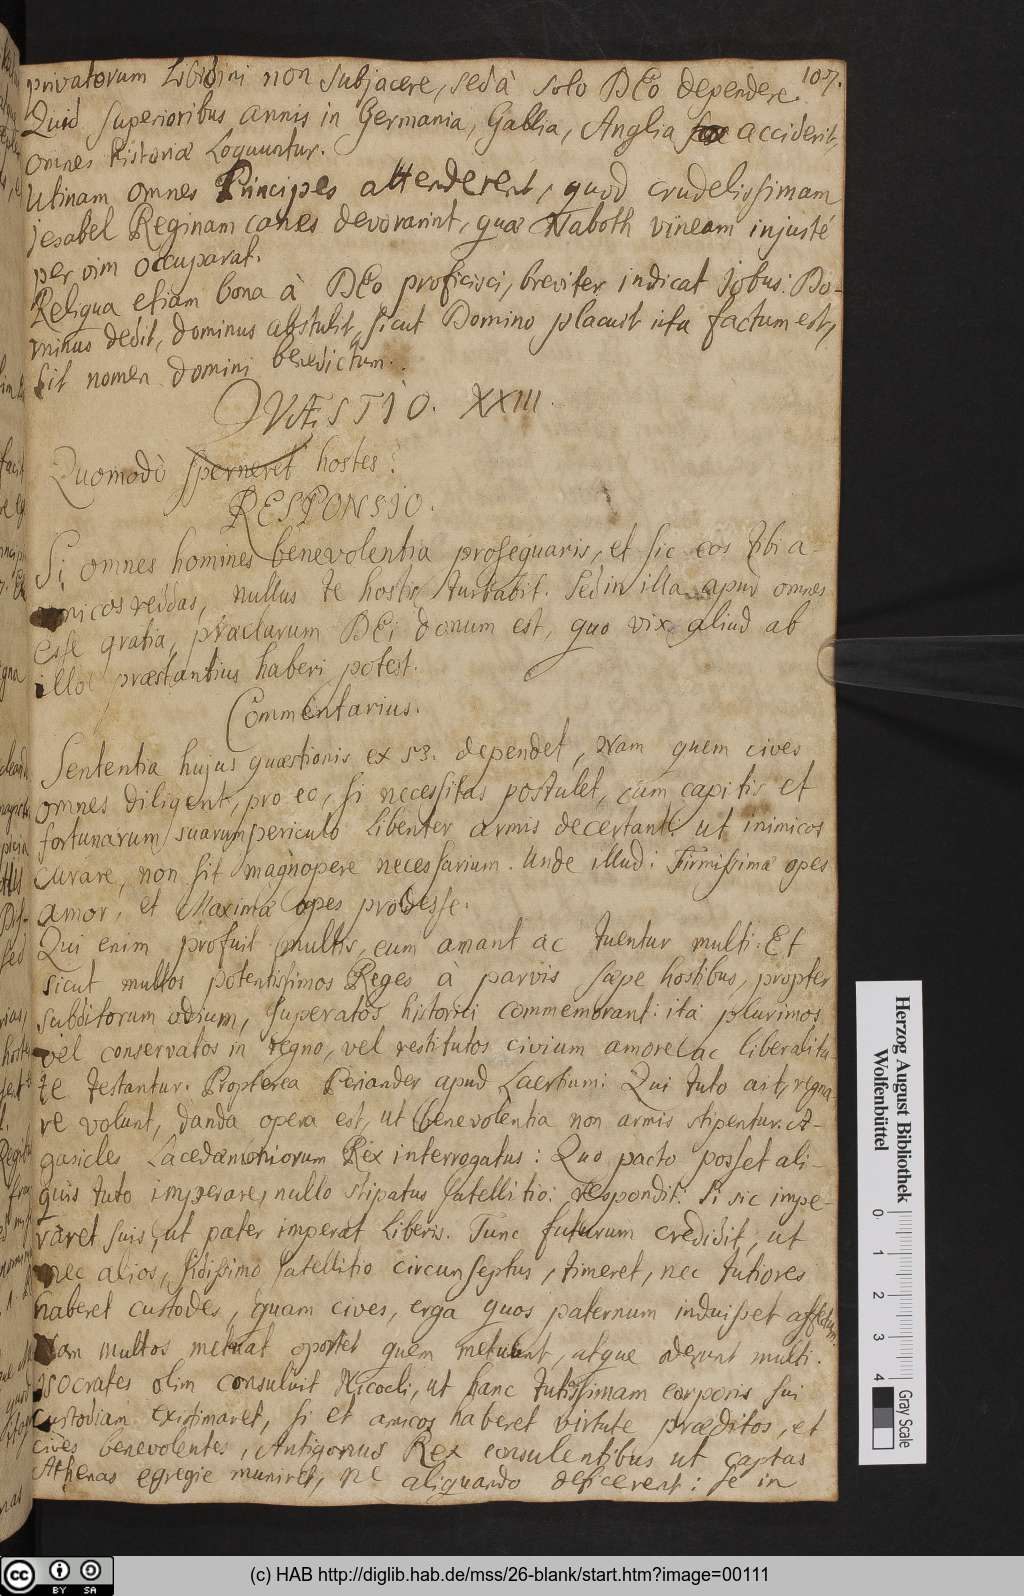 107.
privatorum Libidini non subjacere, sed à solo DEo dependere.
Quid superioribus annis in Germania, Gallia, Anglia acciderit,
omnes historiæ Loquuntur.
Utinam omnes Principes attenderent, quod crudelissimam
jesabel Reginam canes devorarint, quæ Naboth vineam injustè
per vim occuparat.
Reliqua etiam bona à DEo proficisci, breviter indicat Jobus: Do-
minus dedit, dominus abstulit, sicut Domino placuit ita factum est,
sit nomen domini benedictum.
QVÆSTIO. XXIII.
Quomodò sperneret hostes?
RESPONSIO.
Si omnes homines benevolentia prosequaris, et sic eos tibi a-
micos reddas, nullus te hostis turbabit. Sed in illa apud omnes
esse gratia, præclarum DEi donum est, quo vix aliud ab
illo præstantius haberi potest.
Commentarius.
Sententia hujus quæstionis ex 53. dependet, Nam quem cives
omnes diligent, pro eo, si necessitas postulet, cum capitis et
fortunarum suarum periculo libenter armis decertant: ut inimicos
curare, non sit magnopere necessarium. Unde illud: Firmissimæ opes
amor, et Maximæ opes prodesse.
Qui enim profuit multis, eum amant ac tuentur multi. Et
sicut multos potentissimos Reges à parvis sæpe hostibus, propter
subditorum odium, superatos historici commemorant: ita plurimos
vel conservatos in regno, vel restitutos civium amore ac liberalita-
te testantur. Propterea Periander apud Laertium: Qui tuto ait, regna-
re volunt, danda opera est, ut benevolentia non armis stipentur. A-
gasicles Lacedæmoniorum Rex interrogatus: Quo pacto posset ali-
quis tuto imperare, nullo stipatus satellitio: respondit: Si sic impe-
raret suis, ut pater imperat liberis. Tunc futurum credidit, ut
nec alios, fidissimo satellitio circumseptus, timeret, nec tutiores
haberet custodes, quam cives, erga quos paternum induisset affectum.
Nam multos metuat oportet quem metuunt, atque oderunt multi.
Isocrates olim consuluit Nicocli, ut hanc tutissimam corporis sui
custodiam existimaret, si et amicos haberet virtute præditos, et
cives benevolentes, Antigonus Rex consulentibus ut captas
Athenas egregie muniret, ne aliquando deficerent: se in
Herzog August Bibliothek
Wolfenbüttel
0 1 2 3 4
Gray Scale
cc BY SA
(c) HAB http://diglib.hab.de/mss/26-blank/start.htm?image=00111